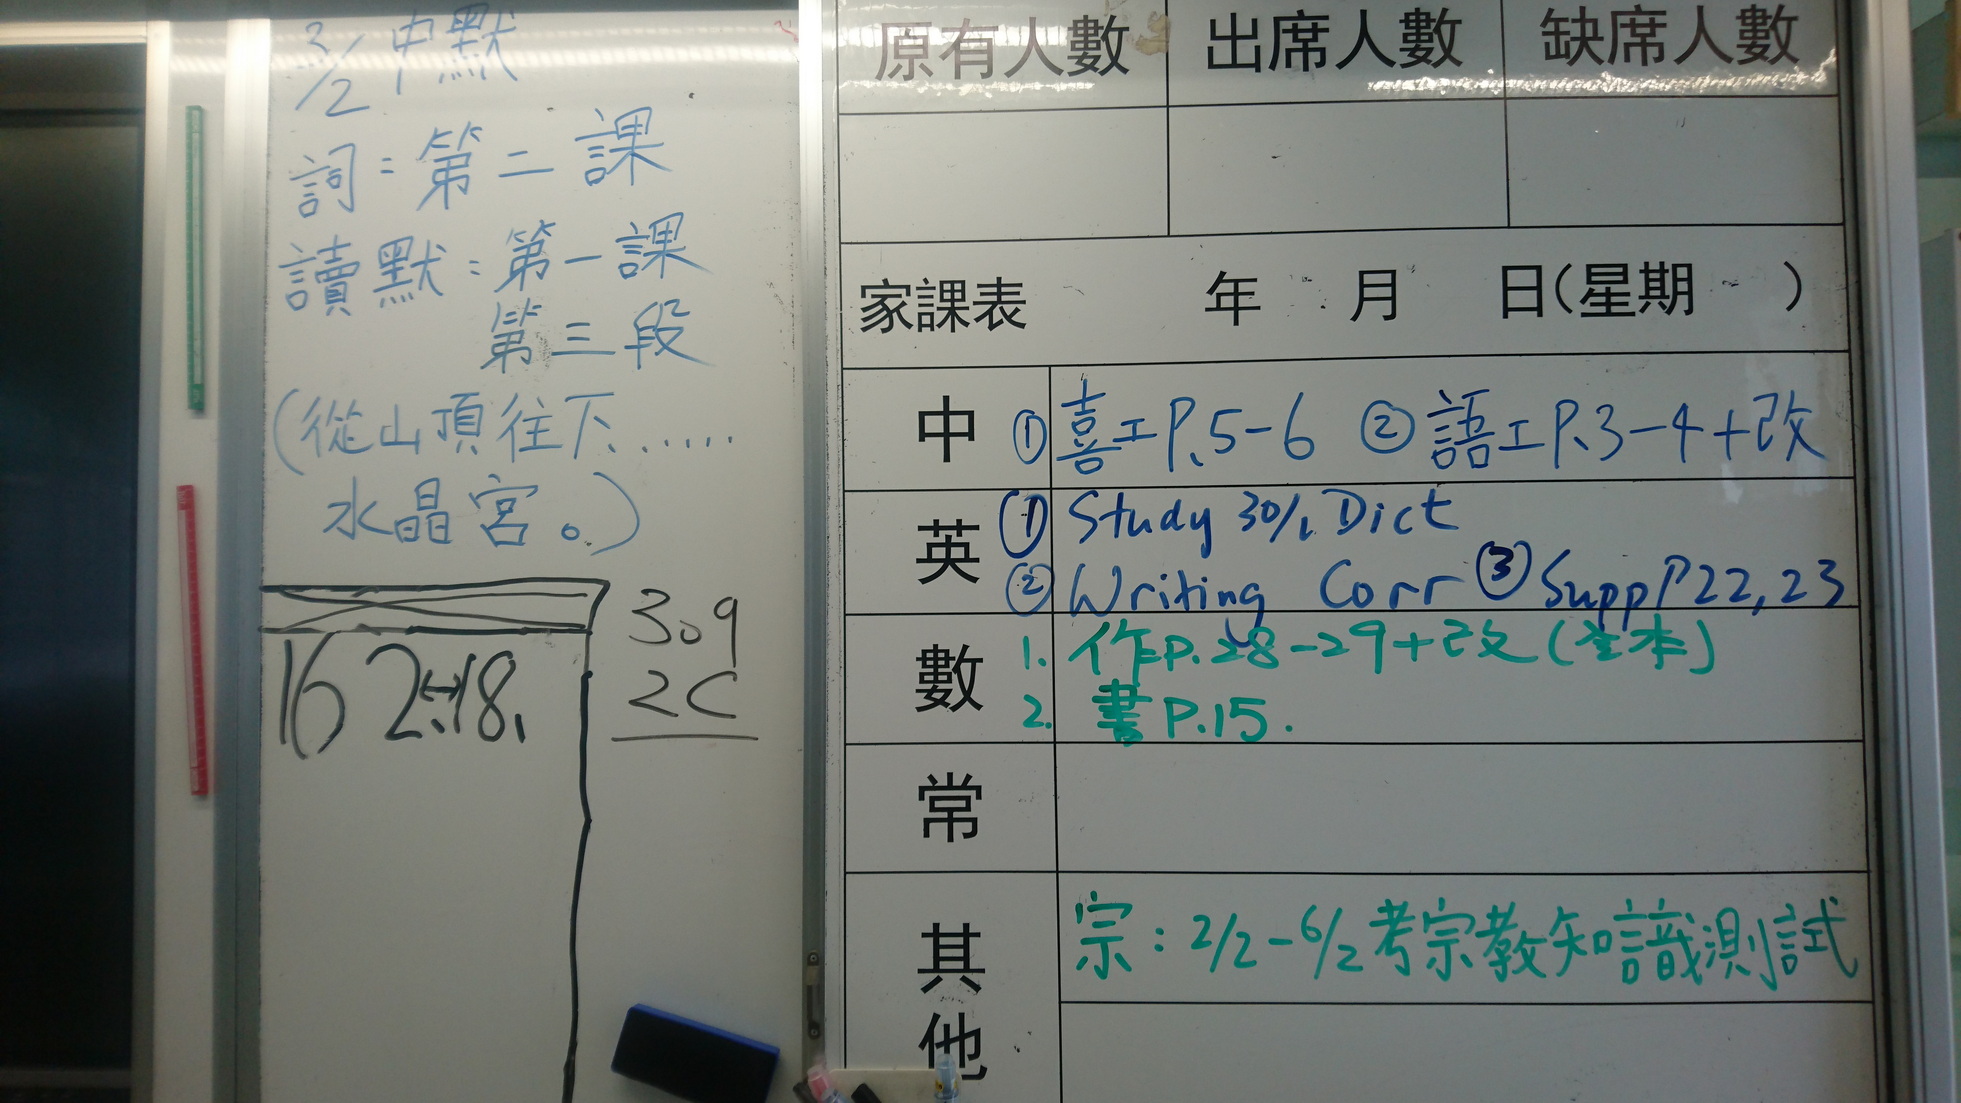 3/2 中默
詞：第二課
讀默：第一課
第三段
(從山頂往下......
水晶宮。)
16 2↔18.
309
2C
原有人數 出席人數 缺席人數
家課表 年 月 日(星期 )
中 ① 喜工P.5-6 ② 語工P.3-4+改
英 ① Study 30/1 Dict
② Writing Corr ③ Supp P22,23
數 1. 作P.28-29+改(全本)
2. 書P.15.
常
其他 宗：2/2-6/2考宗教知識測試